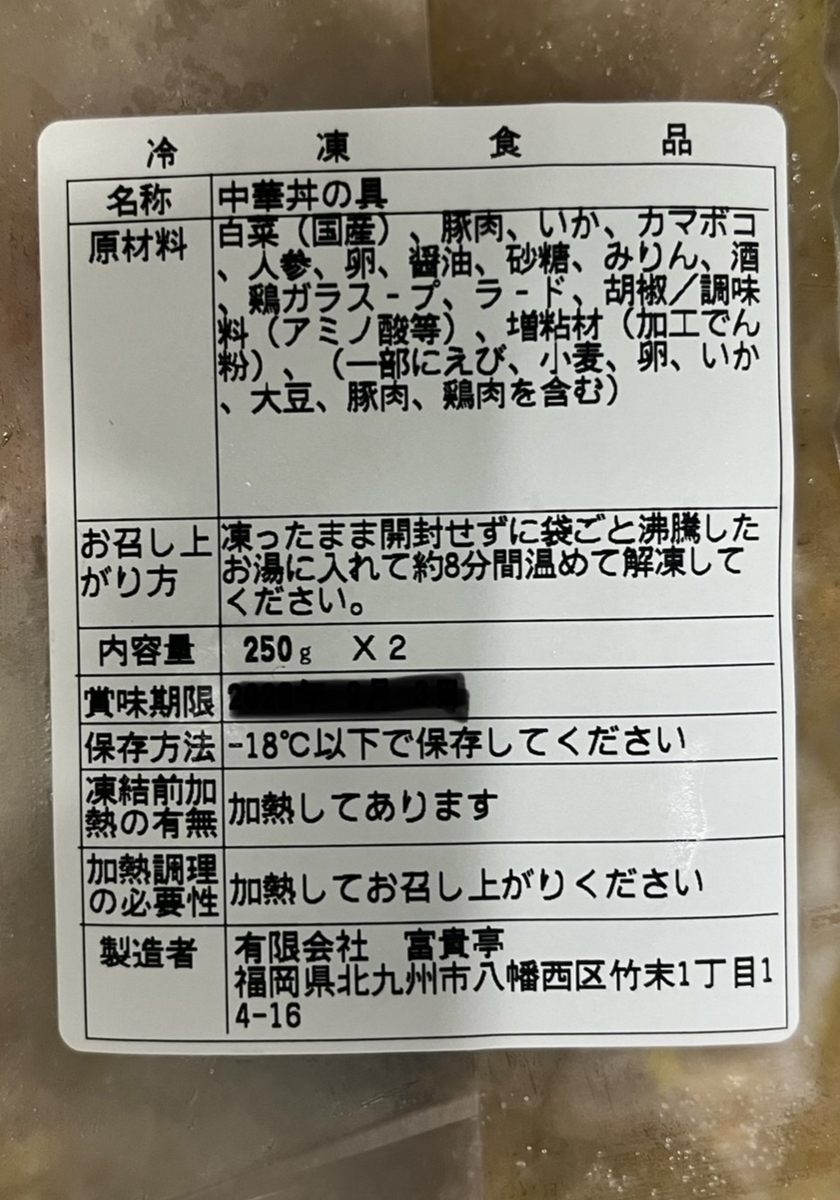 冷凍食品
名称 中華丼の具
原材料 白菜（国産）、豚肉、いか、カマボコ
、人参、卵、醤油、砂糖、みりん、酒
、鶏ガラス-プ、ラ-ド、胡椒／調味
料（アミノ酸等）、増粘材（加工でん
粉）、（一部にえび、小麦、卵、いか
、大豆、豚肉、鶏肉を含む）
お召し上がり方 凍ったまま開封せずに袋ごと沸騰した
お湯に入れて約8分間温めて解凍して
ください。
内容量 250g X2
賞味期限
保存方法 -18℃以下で保存してください
凍結前加熱の有無 加熱してあります
加熱調理の必要性 加熱してお召し上がりください
製造者 有限会社 富貴亭
福岡県北九州市八幡西区竹末1丁目1
4-16